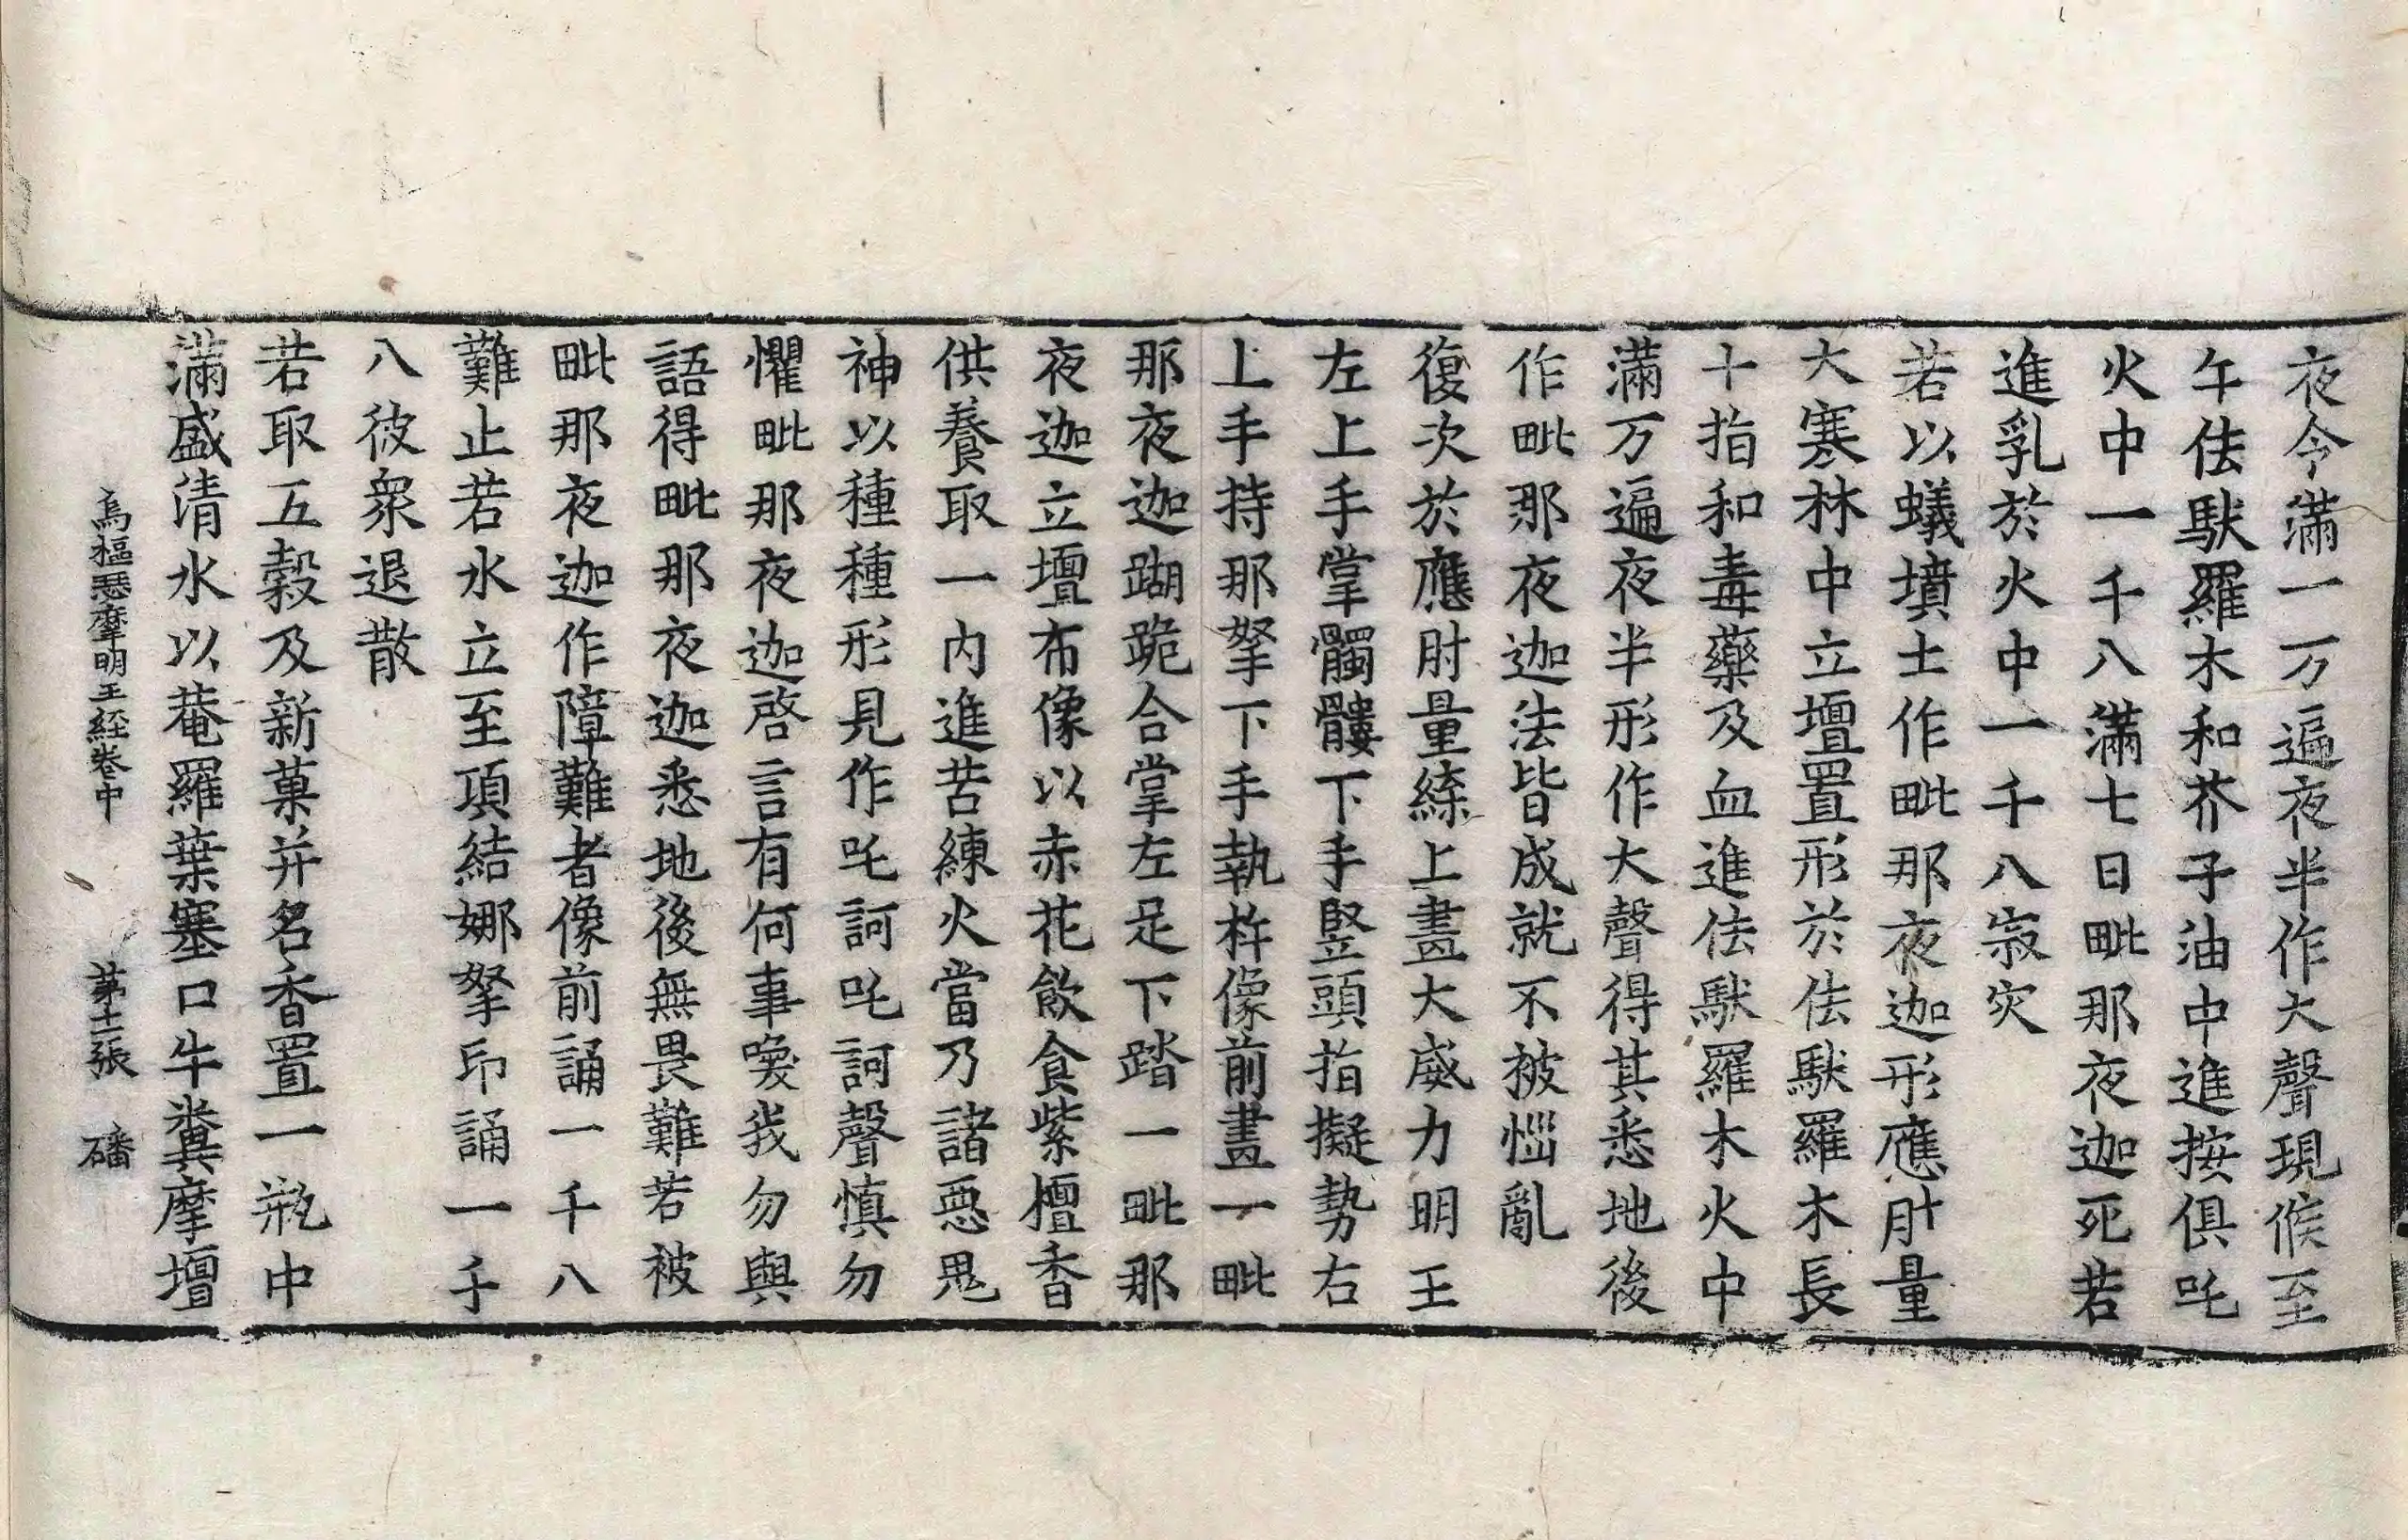 夜令滿一万遍夜半作大聲現候至
午佉馱羅木和芥子油中進按俱吒
火中一千八滿七日毗那夜迦死若
進乳於火中一千八寂灾
若以蟻墳土作毗那夜迦形應肘量
大寒林中立壇置形於佉馱羅木長
十指和毒藥及血進佉馱羅木火中
滿万遍夜半形作大聲得其悉地後
作毗那夜迦法皆成就不被惱亂
復次於應肘量縿上畫大威力明王
左上手掌髑髏下手竪頭指擬勢右
上手持那拏下手執杵像前畫一毗
那夜迦蹴跪合掌左足下踏一毗那
夜迦立壇布像以赤花飲食紫檀香
供養取一內進苦練火當乃諸惡鬼
神以種種形見作吒訶吒訶聲慎勿
懼毗那夜迦啓言有何事喚我勿與
語得毗那夜迦悉地後無畏難若被
毗那夜迦作障難者像前誦一千八
難止若水立至項結娜拏印誦一千
八彼衆退散
若取五穀及新菓并名香置一瓶中
滿盛清水以菴羅葉塞口牛糞摩壇
烏樞瑟摩明王經卷中 苐十二張 磻